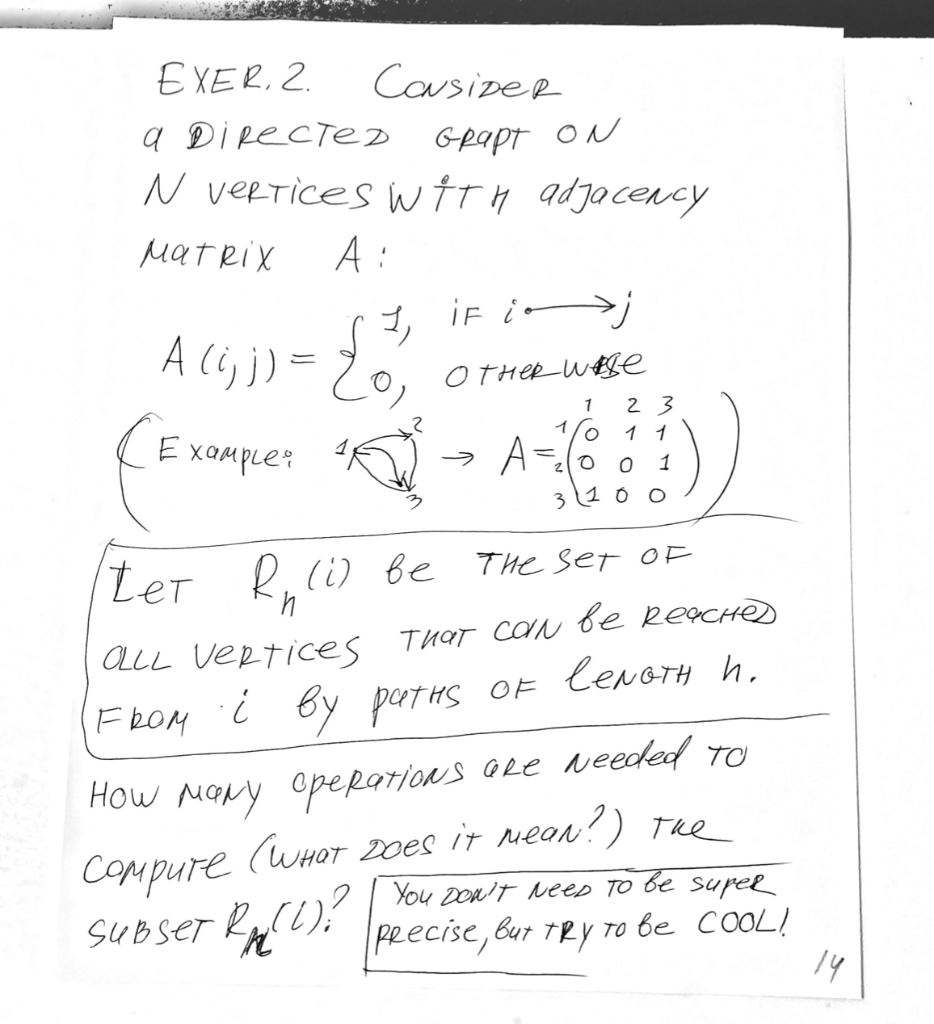 EXER. 2. CONSIDER
a DIRECTED GRAPT ON
N VERTICES WITH adJacENCY
MATRIX A:
A(i,j) = { 1, IF i → j
0, OTHERWISE
(Example: 1 2 3 → A = 
1 2 3
1 (0 1 1
2 0 0 1
3 1 0 0))
LET Rn(i) be THE SET OF
ALL VERTICES THAT CAN be REACHED
FROM i by PATHS OF LENGTH n.
HOW MANY OPERATIONS ARE Needed TO
COMPUTE (WHAT DOES iT MEAN?) THE
SUBSET Rn(i)?
YOU DON'T NEED TO be SUPER
PRECISE, BUT TRY TO be COOL!
14